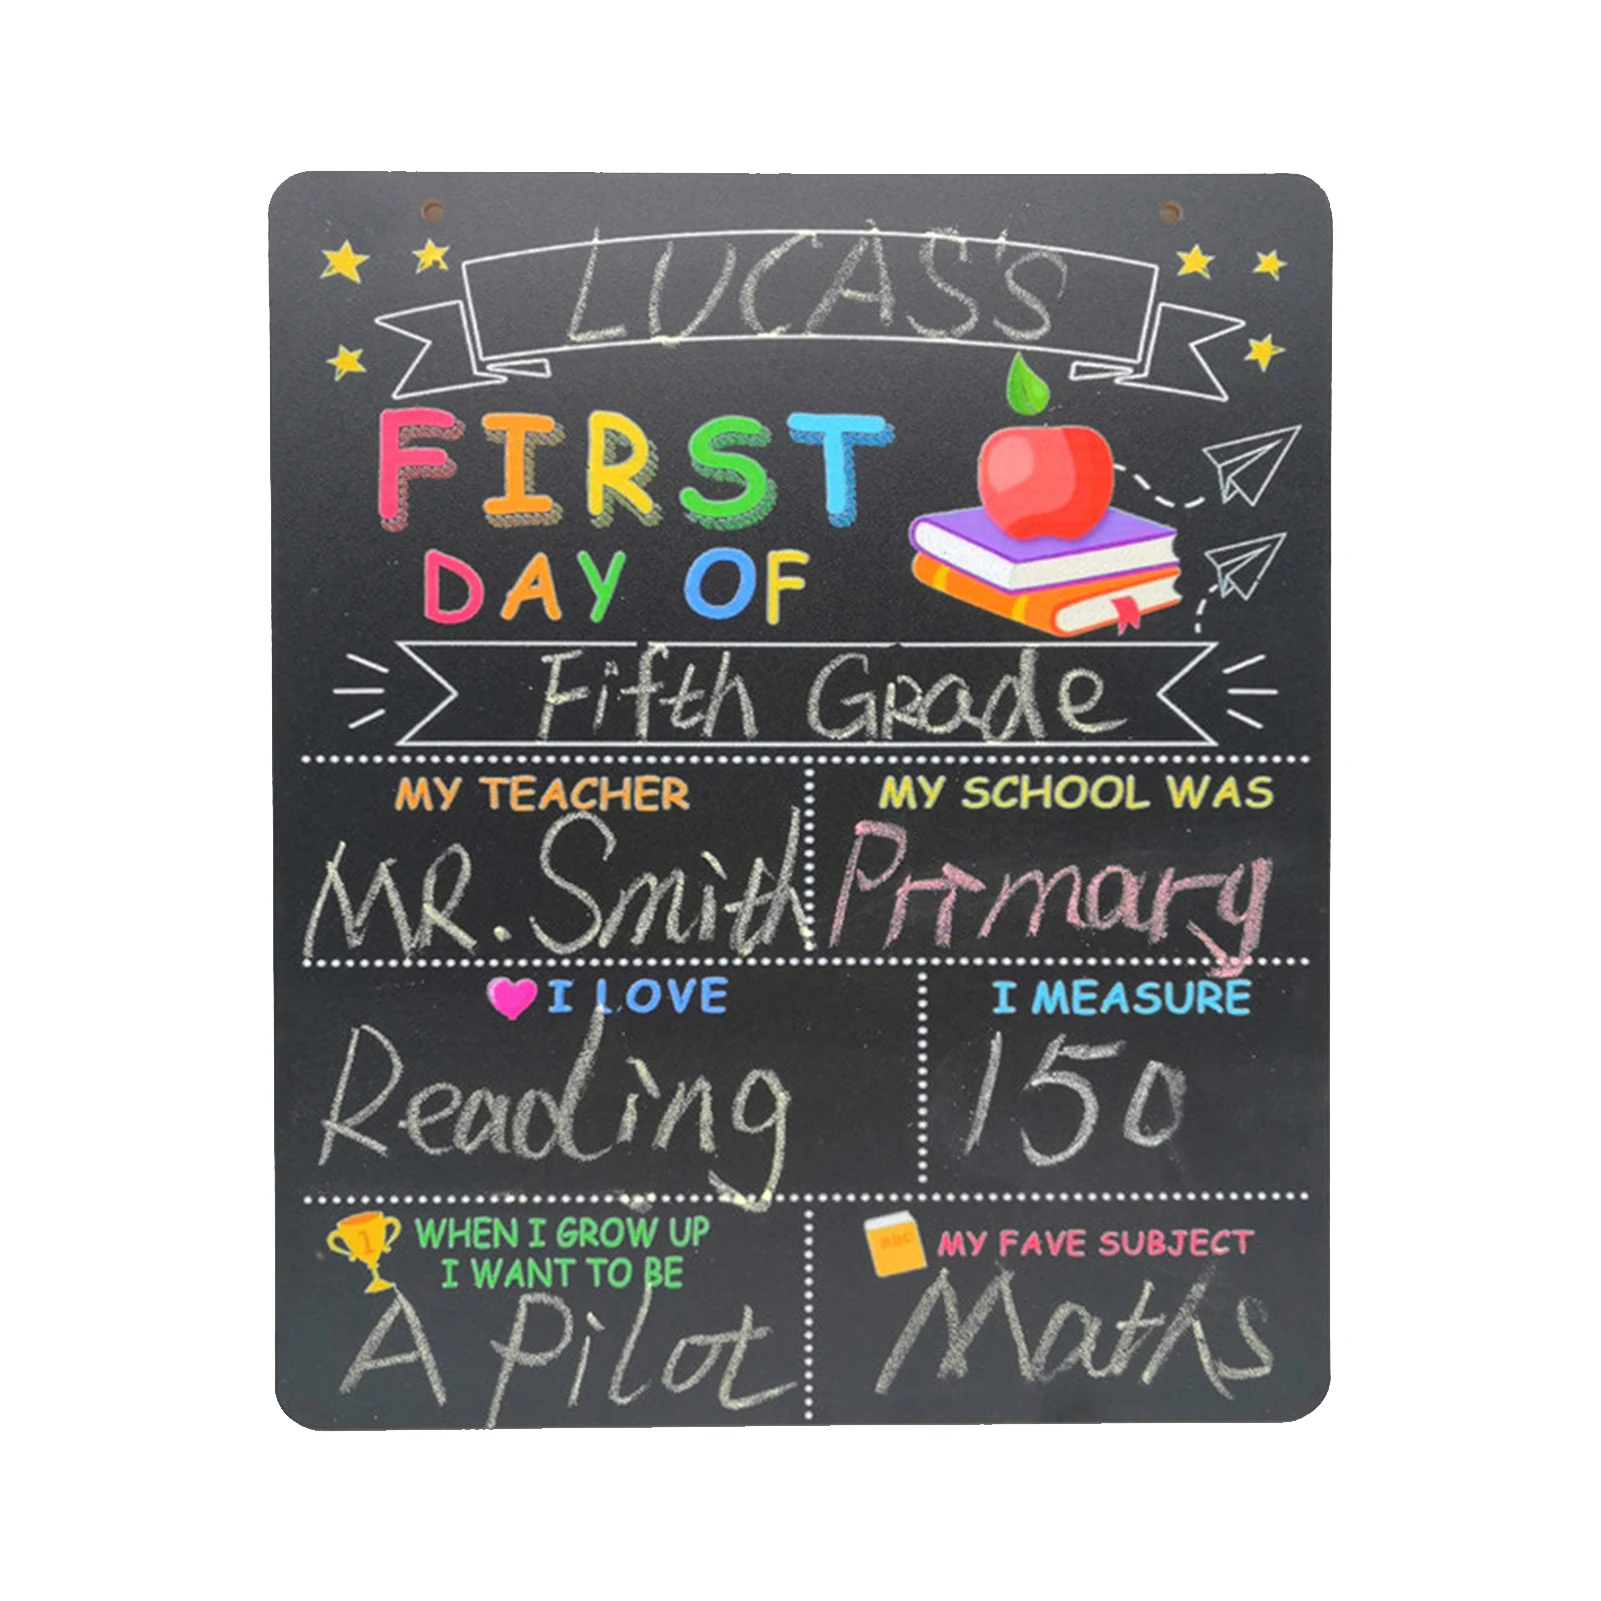 LUCAS'S
FIRST
DAY OF
Fifth Grade
MY TEACHER
MR. Smith
MY SCHOOL WAS
Primary
I LOVE
Reading
I MEASURE
150
1
WHEN I GROW UP
I WANT TO BE
A Pilot
ABC
MY FAVE SUBJECT
Maths